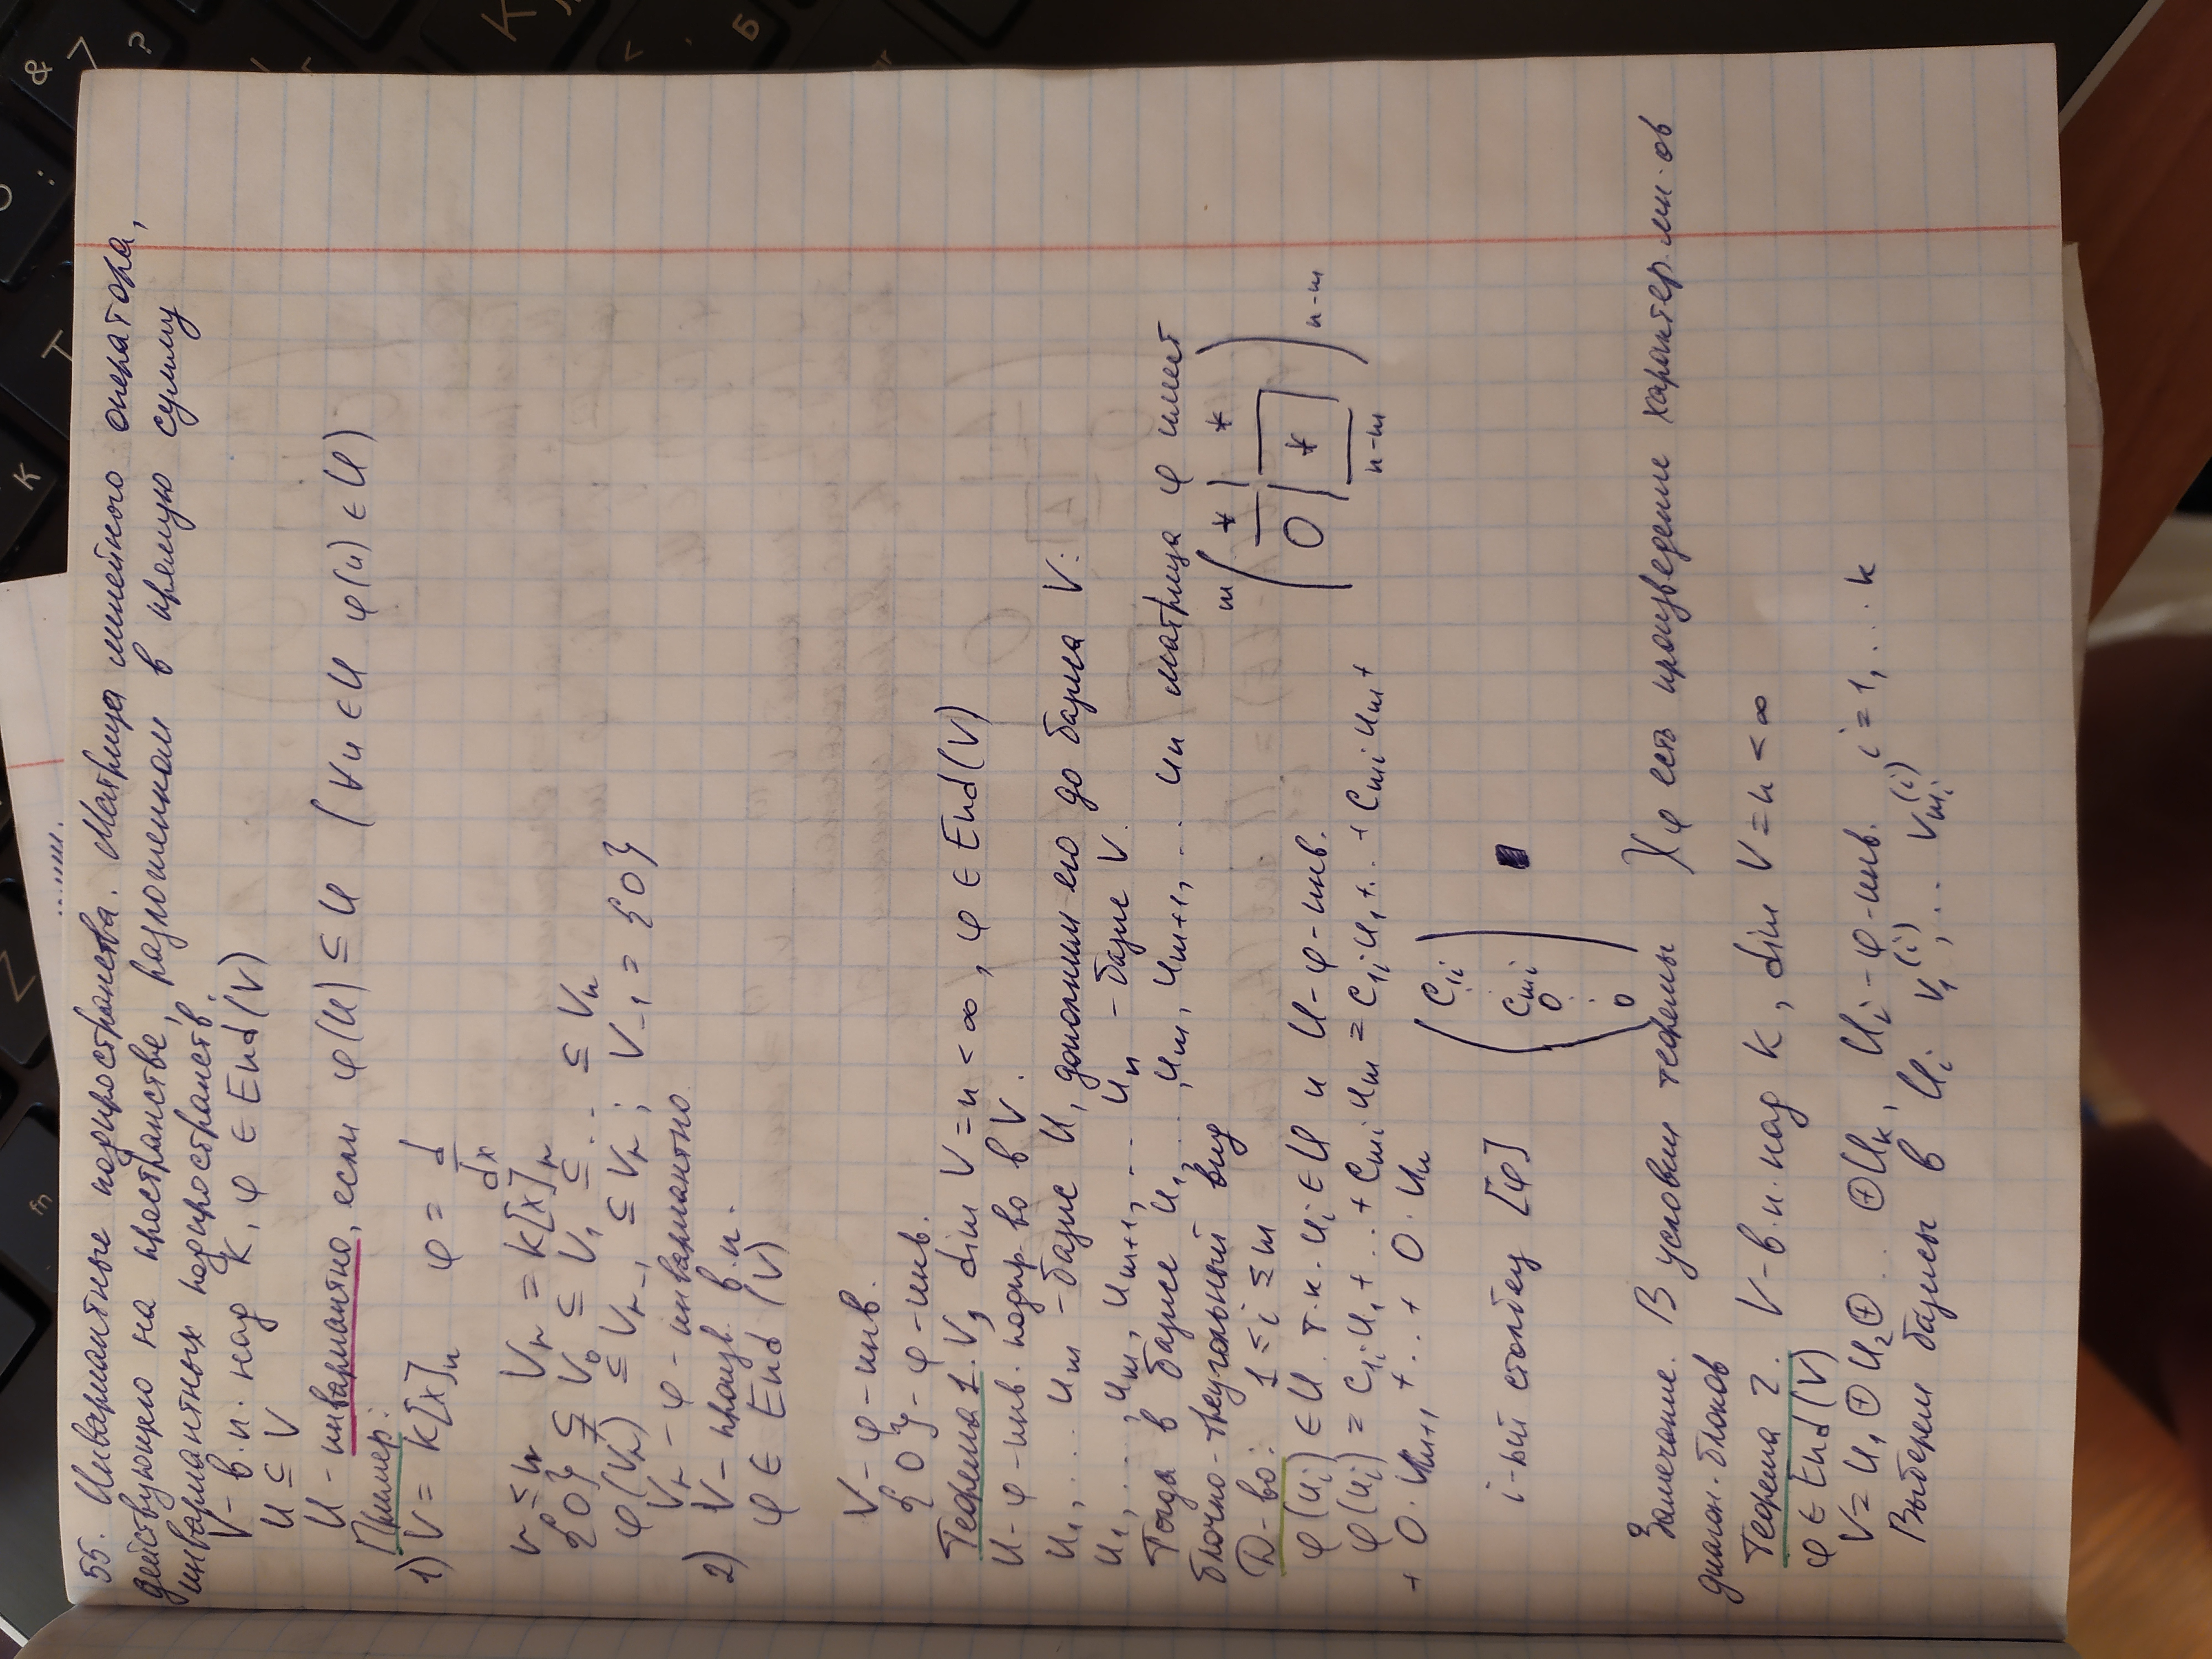 55. Инвариантные подпространства. Матрица линейного оператора,
действующего на пространстве, разложенном в прямую сумму
инвариантных подпространств.
V - в.п. над K, φ ∈ End(V)
U ⊆ V
U - инвариантно, если φ(U) ⊆ U (∀u ∈ U φ(u) ∈ U)
Пример:
1) V = K[x]_n φ = d/dx
r ≤ n V_r = K[x]_r
{0} ⊊ V_0 ⊆ V_1 ⊆ ... ⊆ V_n
φ(V_r) ⊆ V_{r-1} ⊆ V_r ; V_{-1} = {0}
V_r - φ - инвариантно
2) V - произв. в.п.
φ ∈ End(V)
V - φ - инв.
{0} - φ - инв.
Теорема 1. V, dim V = n < ∞, φ ∈ End(V)
U - φ - инв. подпр-во в V.
u_1, ... u_m - базис U, дополним его до базиса V:
u_1, ..., u_m, u_{m+1}, ... u_n - базис V
Тогда в базисе u_1, ..., u_m, u_{m+1}, ... u_n матрица φ имеет
блочно-треугольный вид
m ( * | * / 0 | * ) n-m
n-m
Д-во: 1 ≤ i ≤ m
φ(u_i) ∈ U т.к. u_i ∈ U и U - φ - инв.
φ(u_i) = c_{1i} u_1 + ... + c_{mi} u_m = c_{1i} u_1 + ... + c_{mi} u_m +
+ 0 · u_{m+1} + ... + 0 · u_n
i-ый столбец [φ] ( c_{1i} ⋮ c_{mi} 0 ⋮ 0 ) ■
Замечание. В условии теоремы χ_φ есть произведение характер. мн-ов
диагон. блоков
Теорема 2. V - в.п. над K, dim V = n < ∞
φ ∈ End(V)
V = U_1 ⊕ U_2 ⊕ ... ⊕ U_k, U_i - φ - инв.
Выберем базисы в U_i v_1^{(i)}, ... v_{m_i}^{(i)} i = 1, ... k